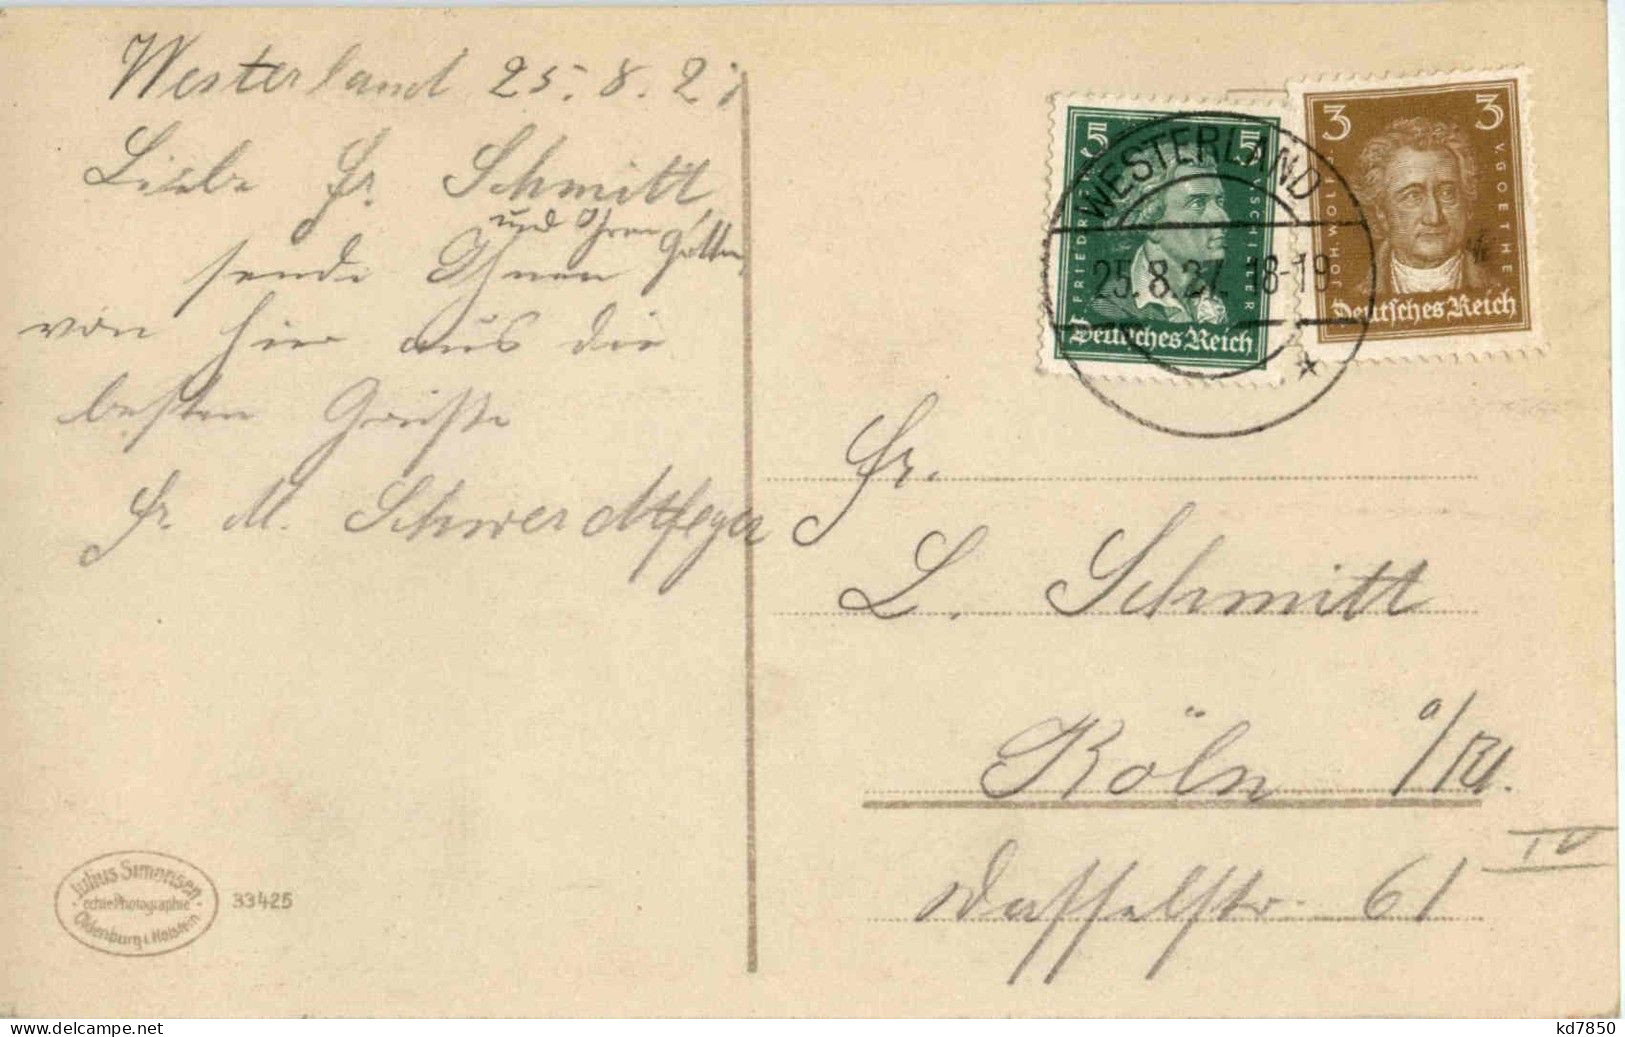 Westerland 25.8.27
Liebe Fr. Schmitt
und Ihren Gatten
sende Ihnen
von hier aus die
besten Grüße
Fr. M. Schwerdtfeger
5 5
F. FRIEDR. V. SCHILLER
Deutsches Reich
3 3
JOH. WOLFG. V. GOETHE
Deutsches Reich
WESTERLAND
25.8.27. 18-19
Fr.
L. Schmitt
Köln a/Rh.
IV
Dasselstr. 61
Julius Simonsen
echte Photographie
Oldenburg i. Holstein
33425
www.delcampe.net
kd7850